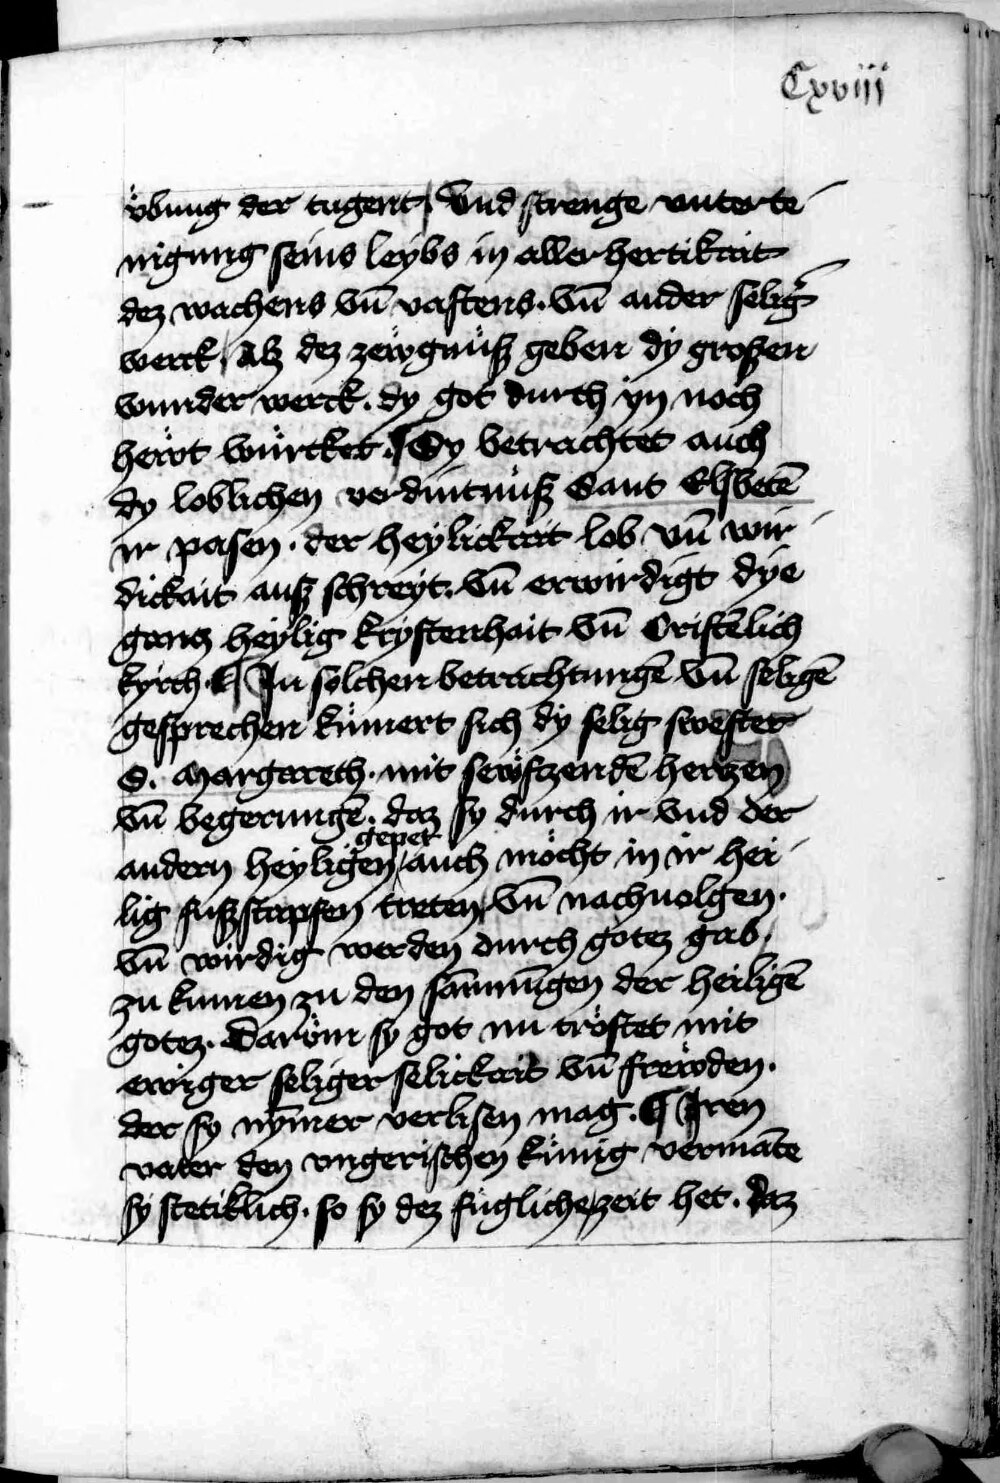 Cxviii
vͤbung der tugent / Vnd strenge vnterte
nigung seins leybs in aller hertikait
dez wachens vn̄ vastens · vn̄ ander seliḡ
werck / Alz dez zewgnüsz geben dy groszen
wunder werck · dy got durch yn noch
hewt würcket · ¶ Sy betrachtet auch
dy loblichen verdintnüsz Sant Elsbetē
ir pasen · der heylickait lob vn̄ wir
dickait ausz schreyt · vn̄ erwirdigt dye
gantz heylig krystenhait vn̄ Cristēlich
kyrch · ¶ In solchen betrachtungē vn̄ seligē
gesprechen kümert sich dy selig swester
S. Margareth · mit sewftzendē hertzen
vn̄ begerungē · daz sy durch ir vnd der
gepet
andern heyligen / auch möcht in ir hei
lig fuszstapfen treten / vn̄ nachuolgen ·
vn̄ wirdig werden durch gotez gab /
zu kumen zu den sāmnūgen der heiligē
gotez · Darüm sy got nu tröstet mit
ewiger seliger selickait vn̄ frewden ·
der sy nȳmer verlisen mag · ¶ Iren
vater den vngerischen künig vermāte
sy stetiklich · so sy dez füglich zeit het · daz